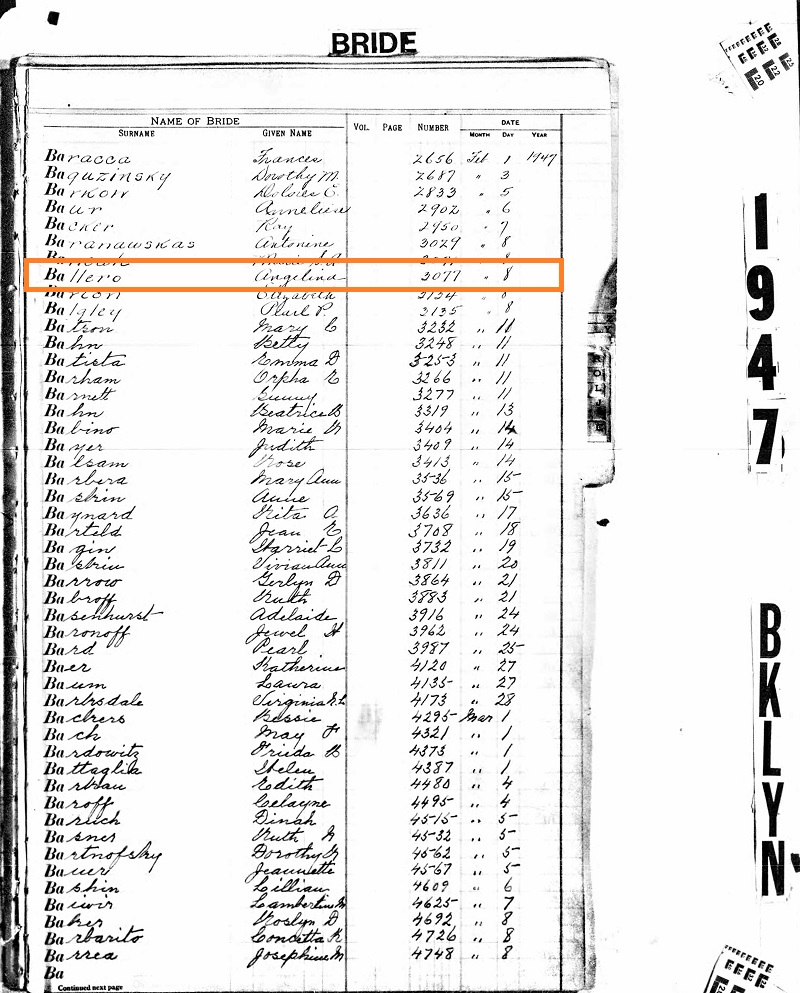 BRIDE
NAME OF BRIDE VOL. PAGE NUMBER DATE
SURNAME GIVEN NAME MONTH DAY YEAR
Baracca Frances 2656 Feb 1 1947
Baguzinsky Dorothy M. 2687 " 3
Barkow Dolores C. 2833 " 5
Baur Annelies 2902 " 6
Backer Ray 2950 " 7
Baranawskas Antonine 3029 " 8
Ballero Angelina 3077 " 8
Barton Elizabeth 3134 " 8
Balgley Pearl P. 3135 " 8
Batson Mary C 3232 " 11
Bahn Betty 3248 " 11
Batista Emma D 3253 " 11
Barham Orpha E 3266 " 11
Barnett 3277 " 11
Bahn Beatrice B 3319 " 13
Babino Marie 3404 " 14
Bayer Judith 3409 " 14
Balsam Rose 3413 " 14
Barbera Mary Ann 3536 " 15
Baskin Anne 3569 " 15
Baynard Rita A. 3636 " 17
Barteld Jean E 3708 " 18
Bagin Harriet L 3732 " 19
Baskin Vivian Ann 3811 " 20
Barrow Gerlyn D 3864 " 21
Babroff Ruth 3883 " 21
Basenhurst Adelaide 3916 " 24
Baronoff Jewel H 3962 " 24
Bard Pearl 3987 " 25
Baer Katherine 4120 " 27
Baum Laura 4135 " 27
Barbsdale Virginia 4173 " 28
Backers Bessie 4295 Mar 1
Bach May F 4321 " 1
Bardowitz Frieda B 4373 " 1
Battaglia Helen 4387 " 1
Barbau Edith 4480 " 4
Baroff Celayne 4495 " 4
Baruch Dinah 4515 " 5
Basner Ruth 4532 " 5
Bartnofsky Dorothy 4562 " 5
Bauer Jeannette 4567 " 5
Bashin Lillian 4609 " 6
Ba 4625 " 7
Baker Roslyn D 4692 " 8
Barbarito Concetta R 4726 " 8
Barrea Josephine M 4748 " 8
Ba
Continued next page
1947
BKLYN